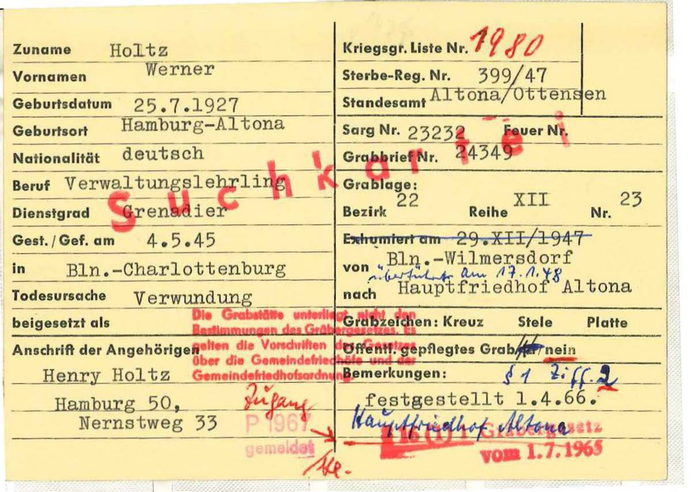 Zuname Holtz
Vornamen Werner
Geburtsdatum 25.7.1927
Geburtsort Hamburg-Altona
Nationalität deutsch
Beruf Verwaltungslehrling
Dienstgrad Grenadier
Gest. / Gef. am 4.5.45
in Bln.-Charlottenburg
Todesursache Verwundung
beigesetzt als
Anschrift der Angehörigen
Henry Holtz
Hamburg 50,
Nernstweg 33
Kriegsgr. Liste Nr. 1980
Sterbe-Reg. Nr. 399/47
Standesamt Altona/Ottensen
Sarg Nr. 23232 Feuer Nr.
Grabbrief Nr. 24349
Grablage:
Bezirk 22 Reihe XII Nr. 23
Exhumiert am 29.XII/1947
von Bln.-Wilmersdorf
überführt am 17.1.48
nach Hauptfriedhof Altona
Grabzeichen: Kreuz Stele Platte
Öffentl. gepflegtes Grab ja/nein
Bemerkungen: § 1 Ziff. 2
festgestellt 1.4.66.
Hauptfriedhof Altona
Gräbergesetz
vom 1.7.1965
Suchkartei
Die Grabstätte unterliegt nicht den
Bestimmungen des Gräbergesetzes. Es
gelten die Vorschriften des Gesetzes
über die Gemeindefriedhöfe und der
Gemeindefriedhofsordnung
Zugang
P 1967
gemeldet